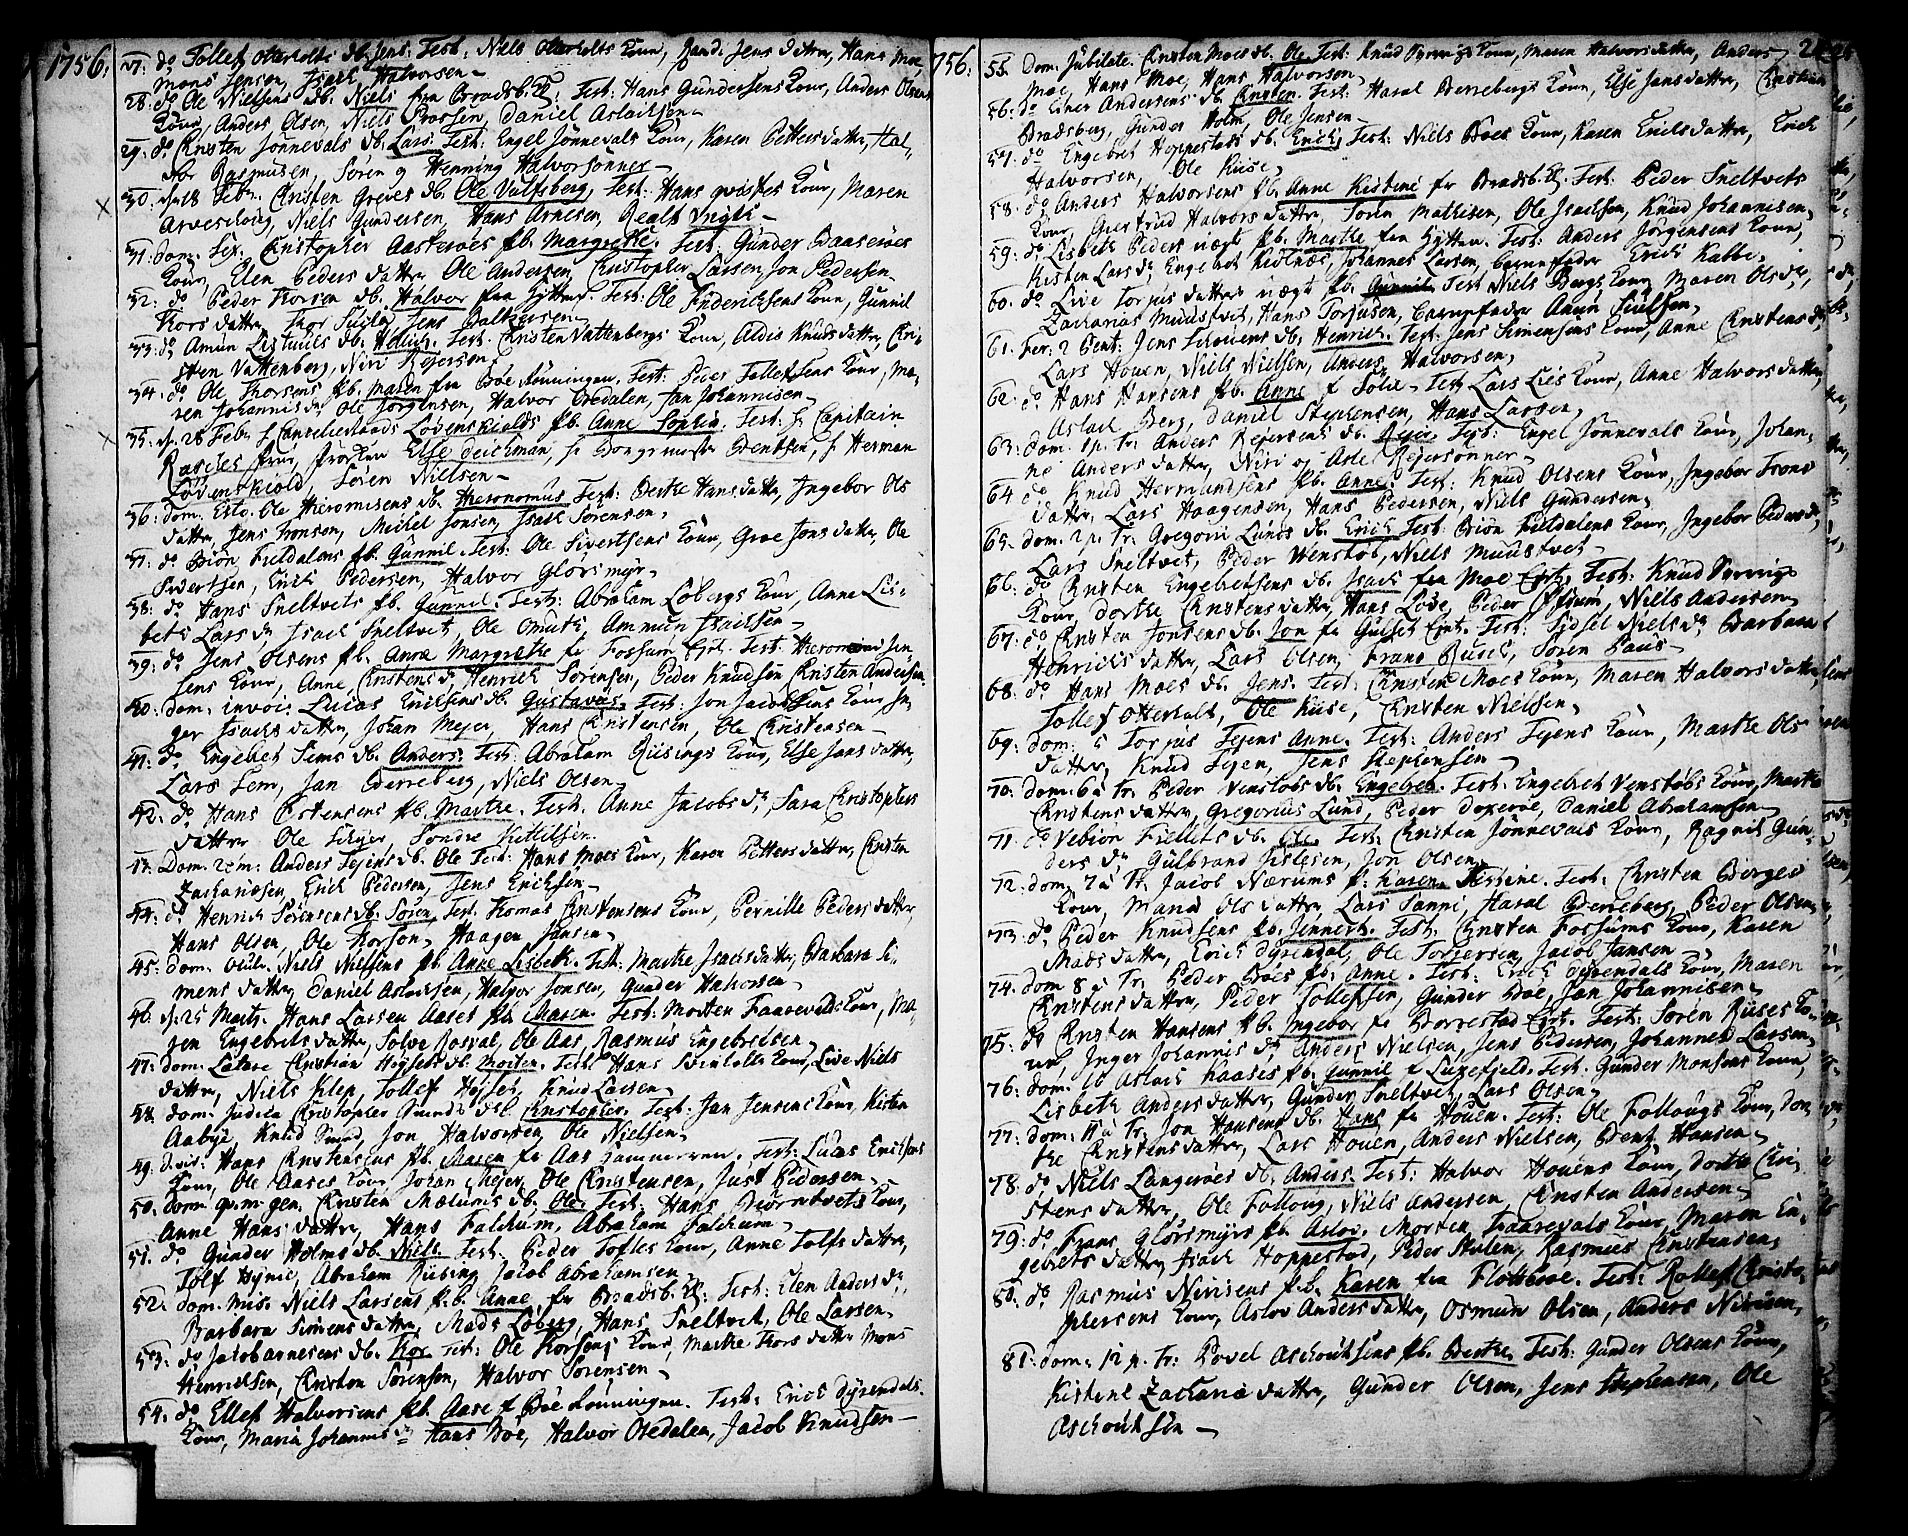 1756.
27. do Tollef Otterholts db. Jens. Test. Niels Otterholts Konr, Jens datter, Hans Moe,
Mons Jensen, Isach Halvorsen
28. do Ole Nielsens db. Niels fra Bradsb. Test: Hans Gundersens Konr, Anders Olsens
Konr, Anders Olsen, Niels Daniel Aslachsen
29. do Christen Jønnevals db. Lars. Test: Engel Jønnevals Konr, Karen Pettersdatter, Hal-
vor Rasmusen, Søren og Henning Halvorsønner
30. 18 Febr. Christen Greves db. Ole Vulfsberg, Test: Hans qvistes Konr, Maren
Arveschoug, Niels Gundersen, Hans Arnesen,
31. dom. Sex. Christopher Aasterøes pb. Margrethe. Test: Gunder Baaserøes
Konr, Elen Peders datter Ole Andersen, Christopher Larsen, Jon Pedersen
32. do Peder Thorsen db. Halvor fra Hytten. Test: Ole Friderichsens Konr, Gunnil
Thors datter, Thor Jens Balthersen
33. do Amun Listuuls db. Test: Christen Vattenbergs Konr, Aldis Knuds datter, Chri-
sten Vattenberg, Niri Rejersen
34. do Ole Thorsens pb. Maren fra Bøe Rønningen. Test: Peder Tollefsens Konr, Ma-
ren Johannis dr Ole Jørgensen, Halvor Oredalen, Jan Johannisen
35. d. 28 Febr. Hr Cancelieraads Løvenskiolds pb. Anne Sophia. Test: Hr Capitain
Rasches frue, frøchen Else Deichman, Hr Borgermester Bentsen, Hr Herman
Løvenskiold, Søren Nielsen
36. dom. Esto. Ole Hieronimisens db. Hieronomus. Test: Berthe Hans datter, Ingebor Ols
datter, Jens Tronsen, Michel Jonsen, Isach Sørensen
37. do Biøn Fieldalens pb. Gunnil. Test: Ole Sivertsens Konr, Groe Jons datter, Ole
Sivertsen, Erich Pedersen, Halvor Glorsmyr
38. do Hans Sneltvets pb. Gunnil. Test: Abraham Løbergs Konr, Anne Lis-
beth Lars dr Isach Sneltvet, Ole Ammun Isachsen
39. do Jens Olsens pb. Anne Margrethe fr Fossum Ejet. Test. Hieronimus Jen
sens Konr, Anne Christens dr Henrich Sørensen, Peder Knudsen Christen Andersen
40. dom. invoc. Lucas Erichsens db. Gustavus. Test: Jon Jacobsens Konr, In-
ger Isachs datter, Johan Mejer, Hans Christensen, Ole Christensen
41. do Engebret Sems db. Anders. Test: Abraham Riisings Konr, Else Jans datter,
Lars Sem, Jan Berreberg, Niels Olsen
42. do Hans Østensens pb. Marthe. Test. Anne Jacobs dr, Sara Christophers
datter Ole Sondre Kittelsen
43. Dom. Rem. Anders Tejens db. Ole Test: Hans Moes Konr, Karen Petters datter, Christen
Zachariasen, Erich Pedersen, Jens Erichsen
44. do Henrich Sørensens db. Søren. Test. Thomas Christensens Konr, Pernille Peders datter,
Hans Olsen, Ole Thorsen, Haagen Jansen
45. dom. ocul. Niels Nielsens pb. Anne Lisbeth. Test: Marthe Isachs datter, Barbara Si-
mens datter, Daniel Aslachsen, Halvor Jonsen, Gunder Halvorsen
46. d. 25 Marty. Hans Larsen Aases pb. Maren. Test: Morten Faarevals Konr, Ma-
ren Engebrets datter, Solve Josval, Ole Aas, Rasmus Engebretsen
47. dom. Lætare Christian Højsets db. Morten. Test: Hans Konr, Live Niels
datter, Niels Klep, Tollef Højset, Knud Larsen
48. dom. Judica Christopher db. Christopher. Test: Jan Jensens Konr, Kisten
Aabye, Knud Jon Halvorsen, Ole Nielsen
49. Hans Christensens pb. Maren fr Aas Test: Lucas Erichsens
Konr, Ole Aases Konr, Johan Mejer, Ole Christensen, Just Pedersen
50. dom. qv. m. gen. Christen Mælums db. Ole. Test: Hans Biørntvets Konr,
Anne Hans datter, Hans Falchum, Abraham Falchum
51. do Gunder Holms db. Niels Test: Peder Toftes Konr, Anne Tolfs datter,
Tolf Hynie, Abraham Riising, Jacob Abrahamsen
52. dom. Mis. Niels Larsens pb. Anne fr Bradsb. Test: Elen Anders dr,
Barbara Simens datter, Mads Løberg, Hans Sneltvet, Ole Larsen
53. do Jacob Arnesens db. Thor Test: Ole Thorsens Konr, Marthe Thors datter Mons
Henrichsen, Christen Sørensen, Halvor Sørensen
54. do Ellef Halvorsens pb. Aase f Bøe Rønningen. Test: Erich Dyrendals
Konr, Maria Johannis dr Hans Bøe, Halvor Oredalen, Jacob Knudsen
1756.
55. Dom. Jubilate. Christen Moes db. Ole Test: Knud Konr, Maren Halvors datter, Anders
Moe, Hans Moe, Hans Halvorsen
56. do Einer Andersens db. Christen. Test: Haral Berrebergs Konr, Else Jans datter, Christian
Bradsberg, Gunder Holm, Ole Jensen
57. do Engebret Hoppestads db. Erich, Test: Niels Boes Konr, Karen Erichs datter, Erich
Halvorsen, Ole Riise
58. do Anders Halvorsens pb. Anne Kistene fr Bradsb. Test: Peder Sneltvets
Konr, Giertrud Halvors datter, Søren Mathisen, Ole Isachsen, Knud Johannisen
59. do Lisbeth Peders uægte pb. Marthe fra Hytten. Test: Anders Jørgensens Konr,
Kisten Lars dr, Engebret Johannes Larsen, barnefader Erich Kalbe
60. do Live Torjus datters uægte pb. Gunnil Test Niels Bergs Konr Maren Ols dr,
Zacharias Muustvet, Hans Torjusen, barnefader Amun
61. Fer. 2 Pent: Jens Schouens db. Henrich. Test: Jens Simensens Konr, Anne Christens dr,
Lars Houen, Niels Nielsen, Anders Halvorsen
62. do Hans Hansens pb. Anne f Solie Test Lars Lies Konr, Anne Halvors datter,
Aslach Berg, Daniel Stephensen, Hans Larsen
63. dom. 1 p. Tr. Anders Rejersens db. Rejer. Test: Engel Jønnevals Konr, Johan-
ne Anders datter, Niri og Asle Rejersønner
64 do Knud Hermundsens pb. Anne. Test: Knud Olsens Konr, Ingebor Trons
datter, Lars Haagensen, Hans Pedersen, Niels Gundersen
65. dom. 2 p. Tr. Gregorii Lunds db. Erich Test: Biøn Fieldalens Konr, Ingebor Peders dr,
Lars Sneltvet, Peder Wenstøb, Niels Muustvet
66. do Christen Engebretsens db. Isach fra Moe Ejet. Test: Knud
Konr Dorthe Christens datter, Hans Løve, Peder Niels Andersen
67. do Christen Jonsens db. Jon fr Gulset Ejet. Test: Sidsel Niels dr, Barbara
Henrichs datter, Lars Olsen, Frans Søren Paus
68. do Hans Moes db. Jens. Test: Christen Moes Konr, Maren Halvors datter,
Tollef Otterholt, Ole Riise, Christen Nielsen
69. dom. 5 Torjus Tejens Anne. Test: Anders Tejens Konr, Marthe Ols
datter, Knud Tejen, Jens Stephensen
70. dom. 6 a Tr. Peder Venstøbs db. Engebret. Test: Engebret Venstøbs Konr, Marthe
Christens datter, Gregorius Lund, Peder Doxerøe, Daniel Abrahamsen
71. do Vebiøn Fiellets db. Ole Test: Christen Jønnevals Konr, Ragnil Gun-
ders dr Gulbrand Jislesen, Jon Olsen
72. dom. 7 a Tr. Jacob Nærums p: Karen Test: Christen Berges
Konr, Maria Ols datter, Lars Sanni, Haral Berreberg, Peder Olsen
73. do Peder Knudsens pb. Jennert. Test. Christen Fossums Konr, Karen
Mads datter, Erich Dyrendal, Ole Torgersen, Jacob Jansen
74. dom 8 a Tr. Peder Boes pb. Anne. Test: Erich Dyrendals Konr, Maren
Christens datter, Peder Tollefsen, Gunder Boe, Jan Johannisen
75. do Christen Hansens pb. Ingebor fr Borrestad Ejet. Test: Søren Riises Ko-
ne, Inger Johannis dr, Anders Nielsen, Jens Pedersen, Johannes Larsen
76. dom. 10 Aslach Kaases pb. Gunnil f Luxefjeld. Test. Gunder Monsens Konr,
Lisbeth Anders datter, Gunder Sneltvet, Lars Olsen
77. dom. 11 a Tr. Jon Hansens db. Hans fr Houen. Test: Ole Follougs Konr, Dor-
the Christens datter, Lars Houen, Anders Nielsen, Bent Hansen
78. do Niels Langerøes db. Anders. Test: Halvor Houens Konr, Dorthe Chri-
stens datter, Ole Folloug, Niels Andersen, Christen Andersen
79. do Frans Glorsmyrs pb. Aslov. Morten Faarevals Konr, Maren En-
gebrets datter, Isach Hoppestad, Peder Hulen, Rasmus Christensen
80. do Rasmus Nirisens pb. Karen fra Flottbøe. Test: Rollef Christo-
phersens Konr, Aslov Anders datter, Osmun Olsen, Anders Nirisen
81. dom. 12 p. Tr: Povel Aschoutsens pb. Berthe. Test: Gunder Olsens Konr,
Kistene Zacharia datter, Gunder Olsen, Jens Stephensen, Ole
Aschoutsen